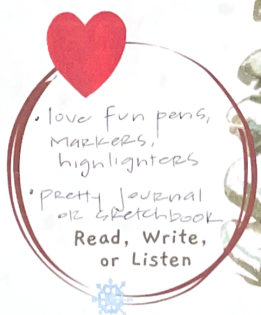 • love fun pens,
markers,
highlighters
• pretty journal
or sketchbook
Read, Write,
or Listen